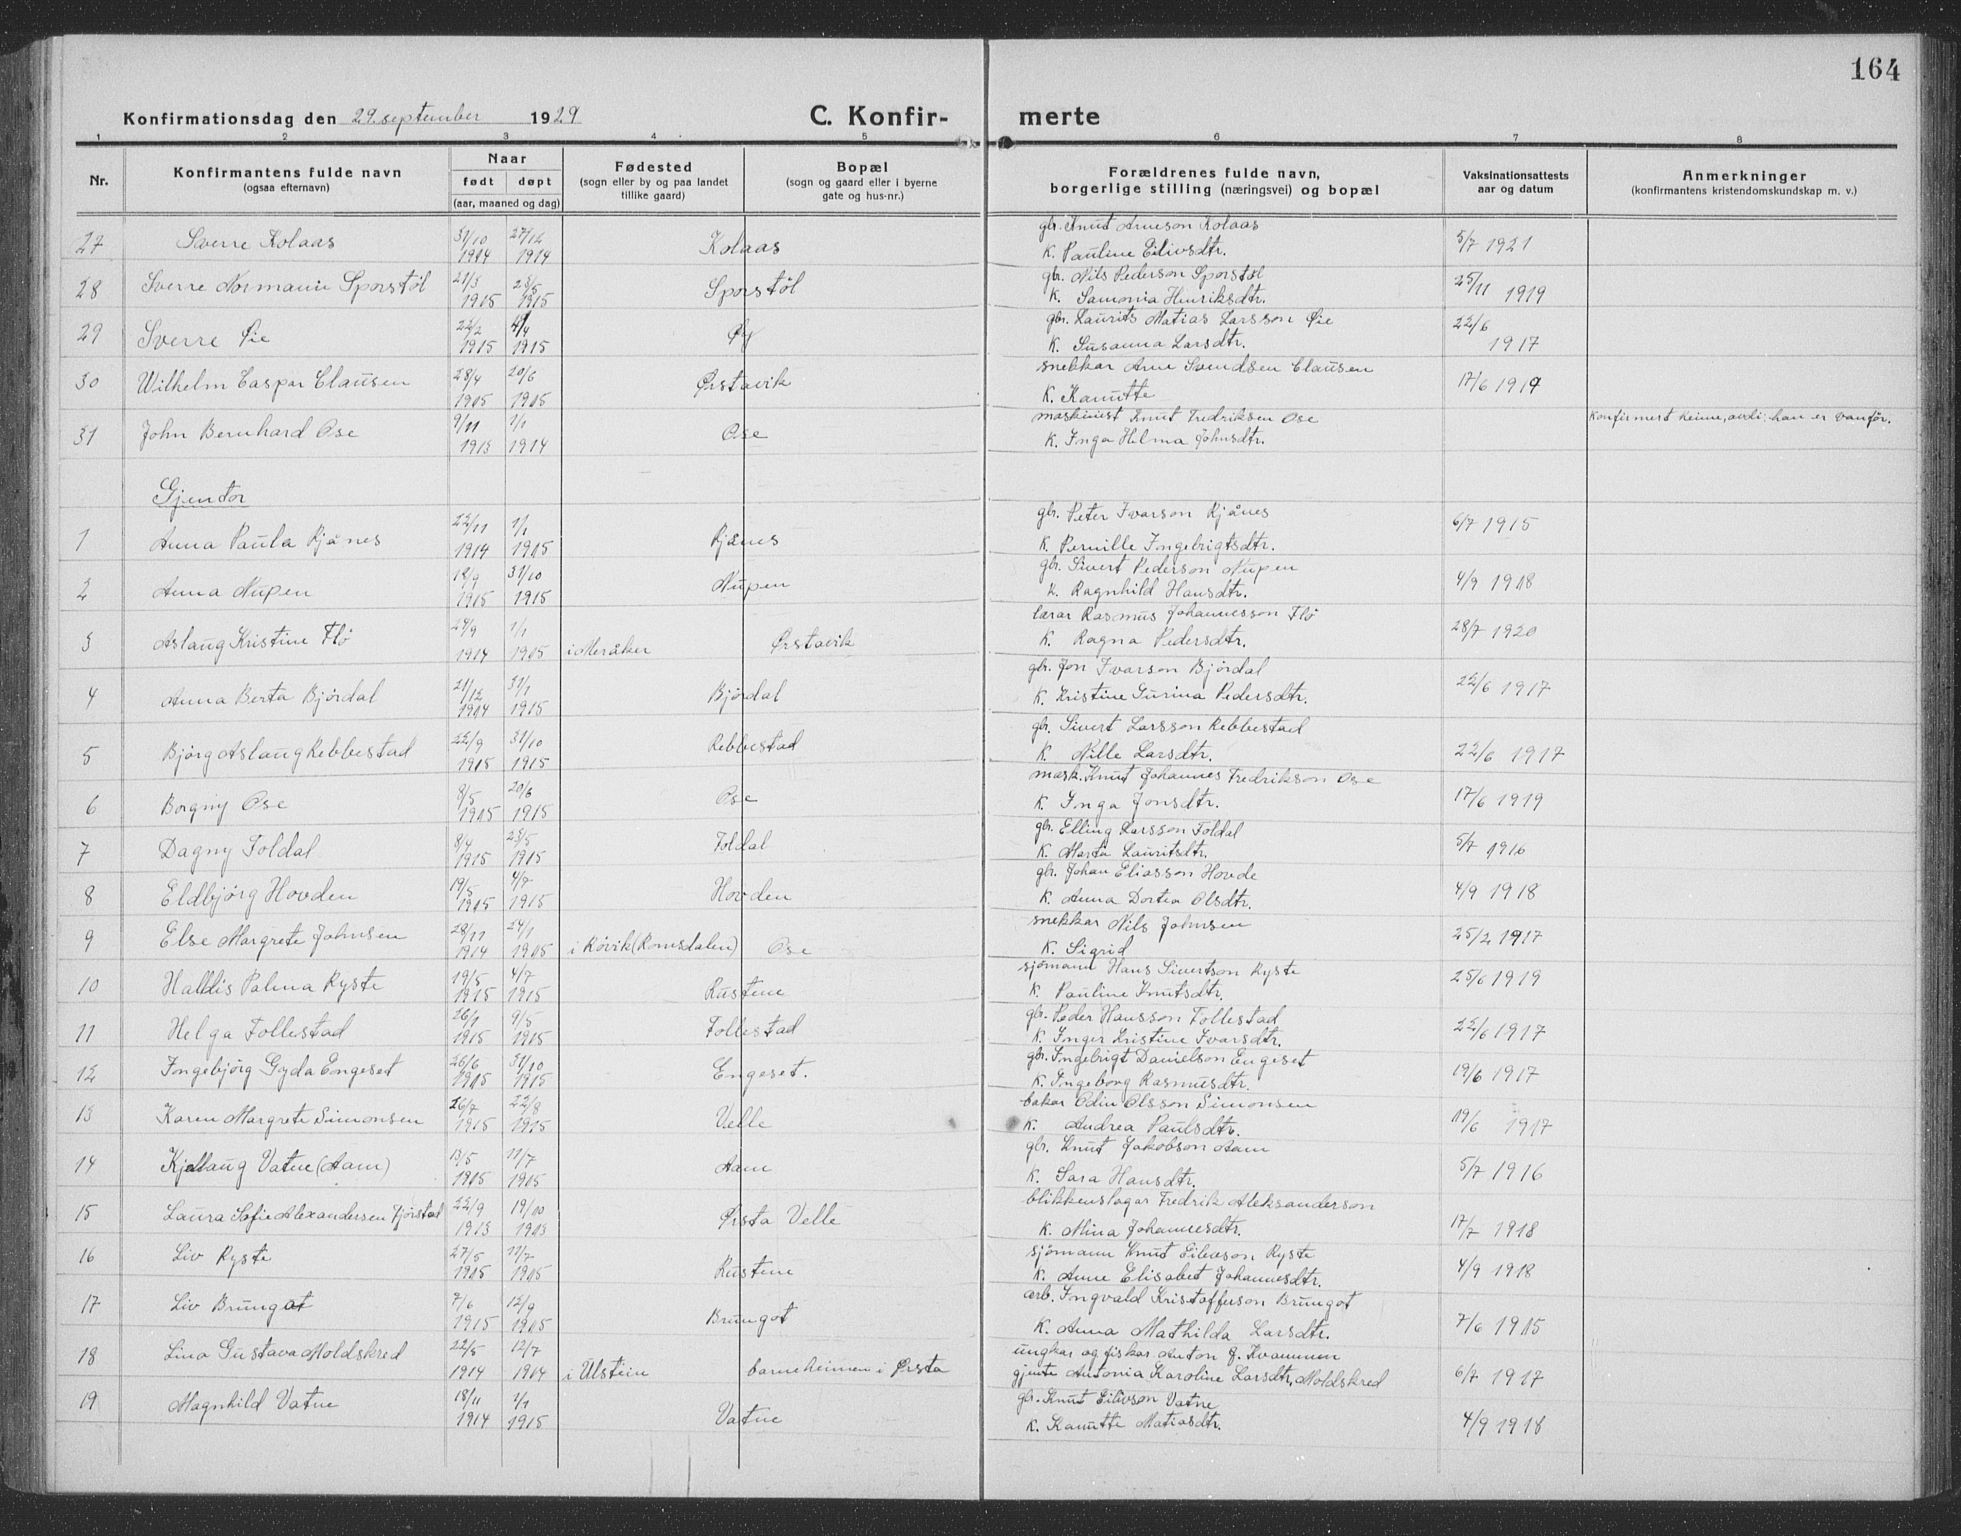 164
Konfirmationsdag den 29. september 1929 C. Konfirmerte
1 2 3 4 5 6 7 8
Nr. Konfirmantens fulde navn (ogsaa efternavn) Naar født døpt (aar, maaned og dag) Fødested (sogn eller by og paa landet tillike gaard) Bopæl (sogn og gaard eller i byerne gate og hus-nr.) Forældrenes fulde navn, borgerlige stilling (næringsvei) og bopæl Vaksinationsattests aar og datum Anmerkninger (konfirmantens kristendomskundskap m. v.)
27 Sverre Kolaas 31/10 1914 27/12 1914 Kolaas gbr. Knut Arneson Kolaas 5/7 1921
K. Pauline Eilivsdtr.
28 Sverre Normann Sporstøl 21/3 1915 23/5 1915 Sporstøl gbr. Nils Pederson Sporstøl 25/11 1919
K. Samonia Hinriksdtr.
29 Sverre Øie 22/2 1915 4/4 1915 Øy gbr. Laurits Matias Larsson Øie 22/6 1917
K. Susanna Larsdtr.
30 Wilhelm Caspar Clausen 28/4 1915 20/6 1915 Ørstavik snekkar Arne Svendsen Clausen 17/6 1919
K. Kanutte
31 John Bernhard Ose 9/11 1913 1/1 1914 Ose maskinist Knut Fredriksen Ose Konfirmert heime, avdi han er vanfør.
K. Inga Hilma Johnsdtr.
Gjentor
1 Anna Paula Rjånes 22/11 1914 1/1 1915 Rjånes gbr. Peter Ivarson Rjånes 6/7 1915
K. Pernille Ingebrigtsdtr.
2 Anna Nupen 12/9 1915 31/10 1915 Nupen gbr. Sivert Pederson Nupen 4/9 1918
K. Ragnhild Hansdtr.
3 Aslaug Kristine Flø 29/9 1914 1/1 1915 i Meråker Ørstavik lærar Rasmus Johannesson Flø 28/7 1920
K. Ragna Pedersdtr.
4 Anna Berta Bjørdal 21/12 1914 31/1 1915 Bjørdal gbr. Jon Ivarson Bjørdal 22/6 1917
K. Kristine Gurina Pedersdtr.
5 Bjørg Aslaug Rebbestad 22/9 1915 31/10 1915 Rebbestad gbr. Sivert Larsson Rebbestad 22/6 1917
K. Nille Larsdtr.
6 Borgny Ose 8/5 1915 20/6 1915 Ose mask. Knut Johannes Fredrikson Ose 17/6 1919
K. Inga Jonsdtr.
7 Dagny Foldal 8/4 1915 23/5 1915 Foldal gbr. Elling Larsson Foldal 5/7 1916
K. Marta Lauritsdtr.
8 Eldbjørg Hovden 19/5 1915 4/7 1915 Hovden gbr. Johan Eliasson Hovde 4/9 1918
K. Anna Dortea Olsdtr.
9 Else Margrete Johnsen 28/11 1914 24/1 1915 i Røvik (Romsdalen) Ose snekkar Nils Johnsen 25/2 1917
K. Sigrid
10 Halldis Palma Ryste 19/5 1915 4/7 1915 Rustene sjømann Hans Sivertson Ryste 25/6 1919
K. Pauline Knutsdtr.
11 Helga Follestad 26/1 1915 9/5 1915 Follestad gbr. Peder Hansson Follestad 22/6 1917
K. Inger Kristine Ivarsdtr.
12 Ingebjørg Gyda Engeset 26/6 1915 31/10 1915 Engeset. gbr. Ingebrigt Danielson Engeset 19/6 1917
K. Ingeborg Rasmusdtr.
13 Karen Margrete Simonsen 26/7 1915 22/8 1915 Velle bakar Odin Olsson Simonsen 19/6 1917
K. Andrea Paulsdtr.
14 Kjellaug Vatne (Aam) 13/5 1915 11/7 1915 Aam gbr. Knut Jakobson Aam 5/7 1916
K. Sara Hansdtr.
15 Laura Sofie Alexandersen Fjørstad 22/9 1913 19/10 1913 Ørsta Velle blikkenslagar Fredrik Aleksanderson 17/7 1918
K. Mina Johannesdtr.
16 Liv Ryste 27/5 1915 11/7 1915 Rustene sjømann Knut Eilivson Ryste 4/9 1918
K. Anne Elisabet Johannesdtr.
17 Liv Brungot 7/6 1915 12/9 1915 Brungot arb. Ingvald Kristofferson Brungot 7/6 1915
K. Anna Mathilda Larsdtr.
18 Lina Gustava Moldskred 22/5 1914 12/7 1914 i Ulstein barneheimen i Ørsta ungkar og fiskar Anton J. Kvammen 6/7 1917
gjente Antonia Karoline Larsdtr. Moldskred
19 Magnhild Vatne 18/11 1914 1/1 1915 Vatne gbr. Knut Eilivson Vatne 4/9 1918
K. Kanutte Matiasdtr.